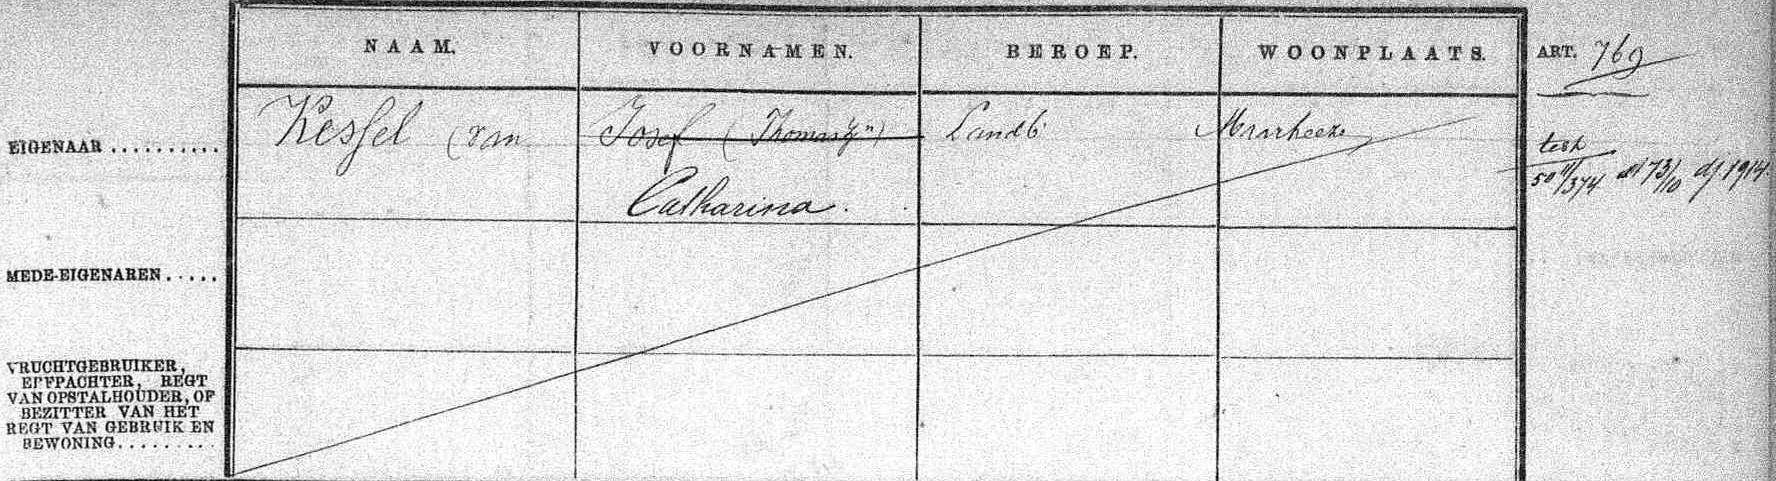 NAAM. VOORNAMEN. BEROEP. WOONPLAATS. ART. 769
EIGENAAR .......... Kessel (van Josef (Thomasz'n) Landb' Maarheeze
Catharina.
test
50 11/374 al 73/10 dj. 1914.
MEDE-EIGENAREN .....
VRUCHTGEBRUIKER,
ERFPACHTER, REGT
VAN OPSTALHOUDER, OF
BEZITTER VAN HET
REGT VAN GEBRUIK EN
BEWONING.........